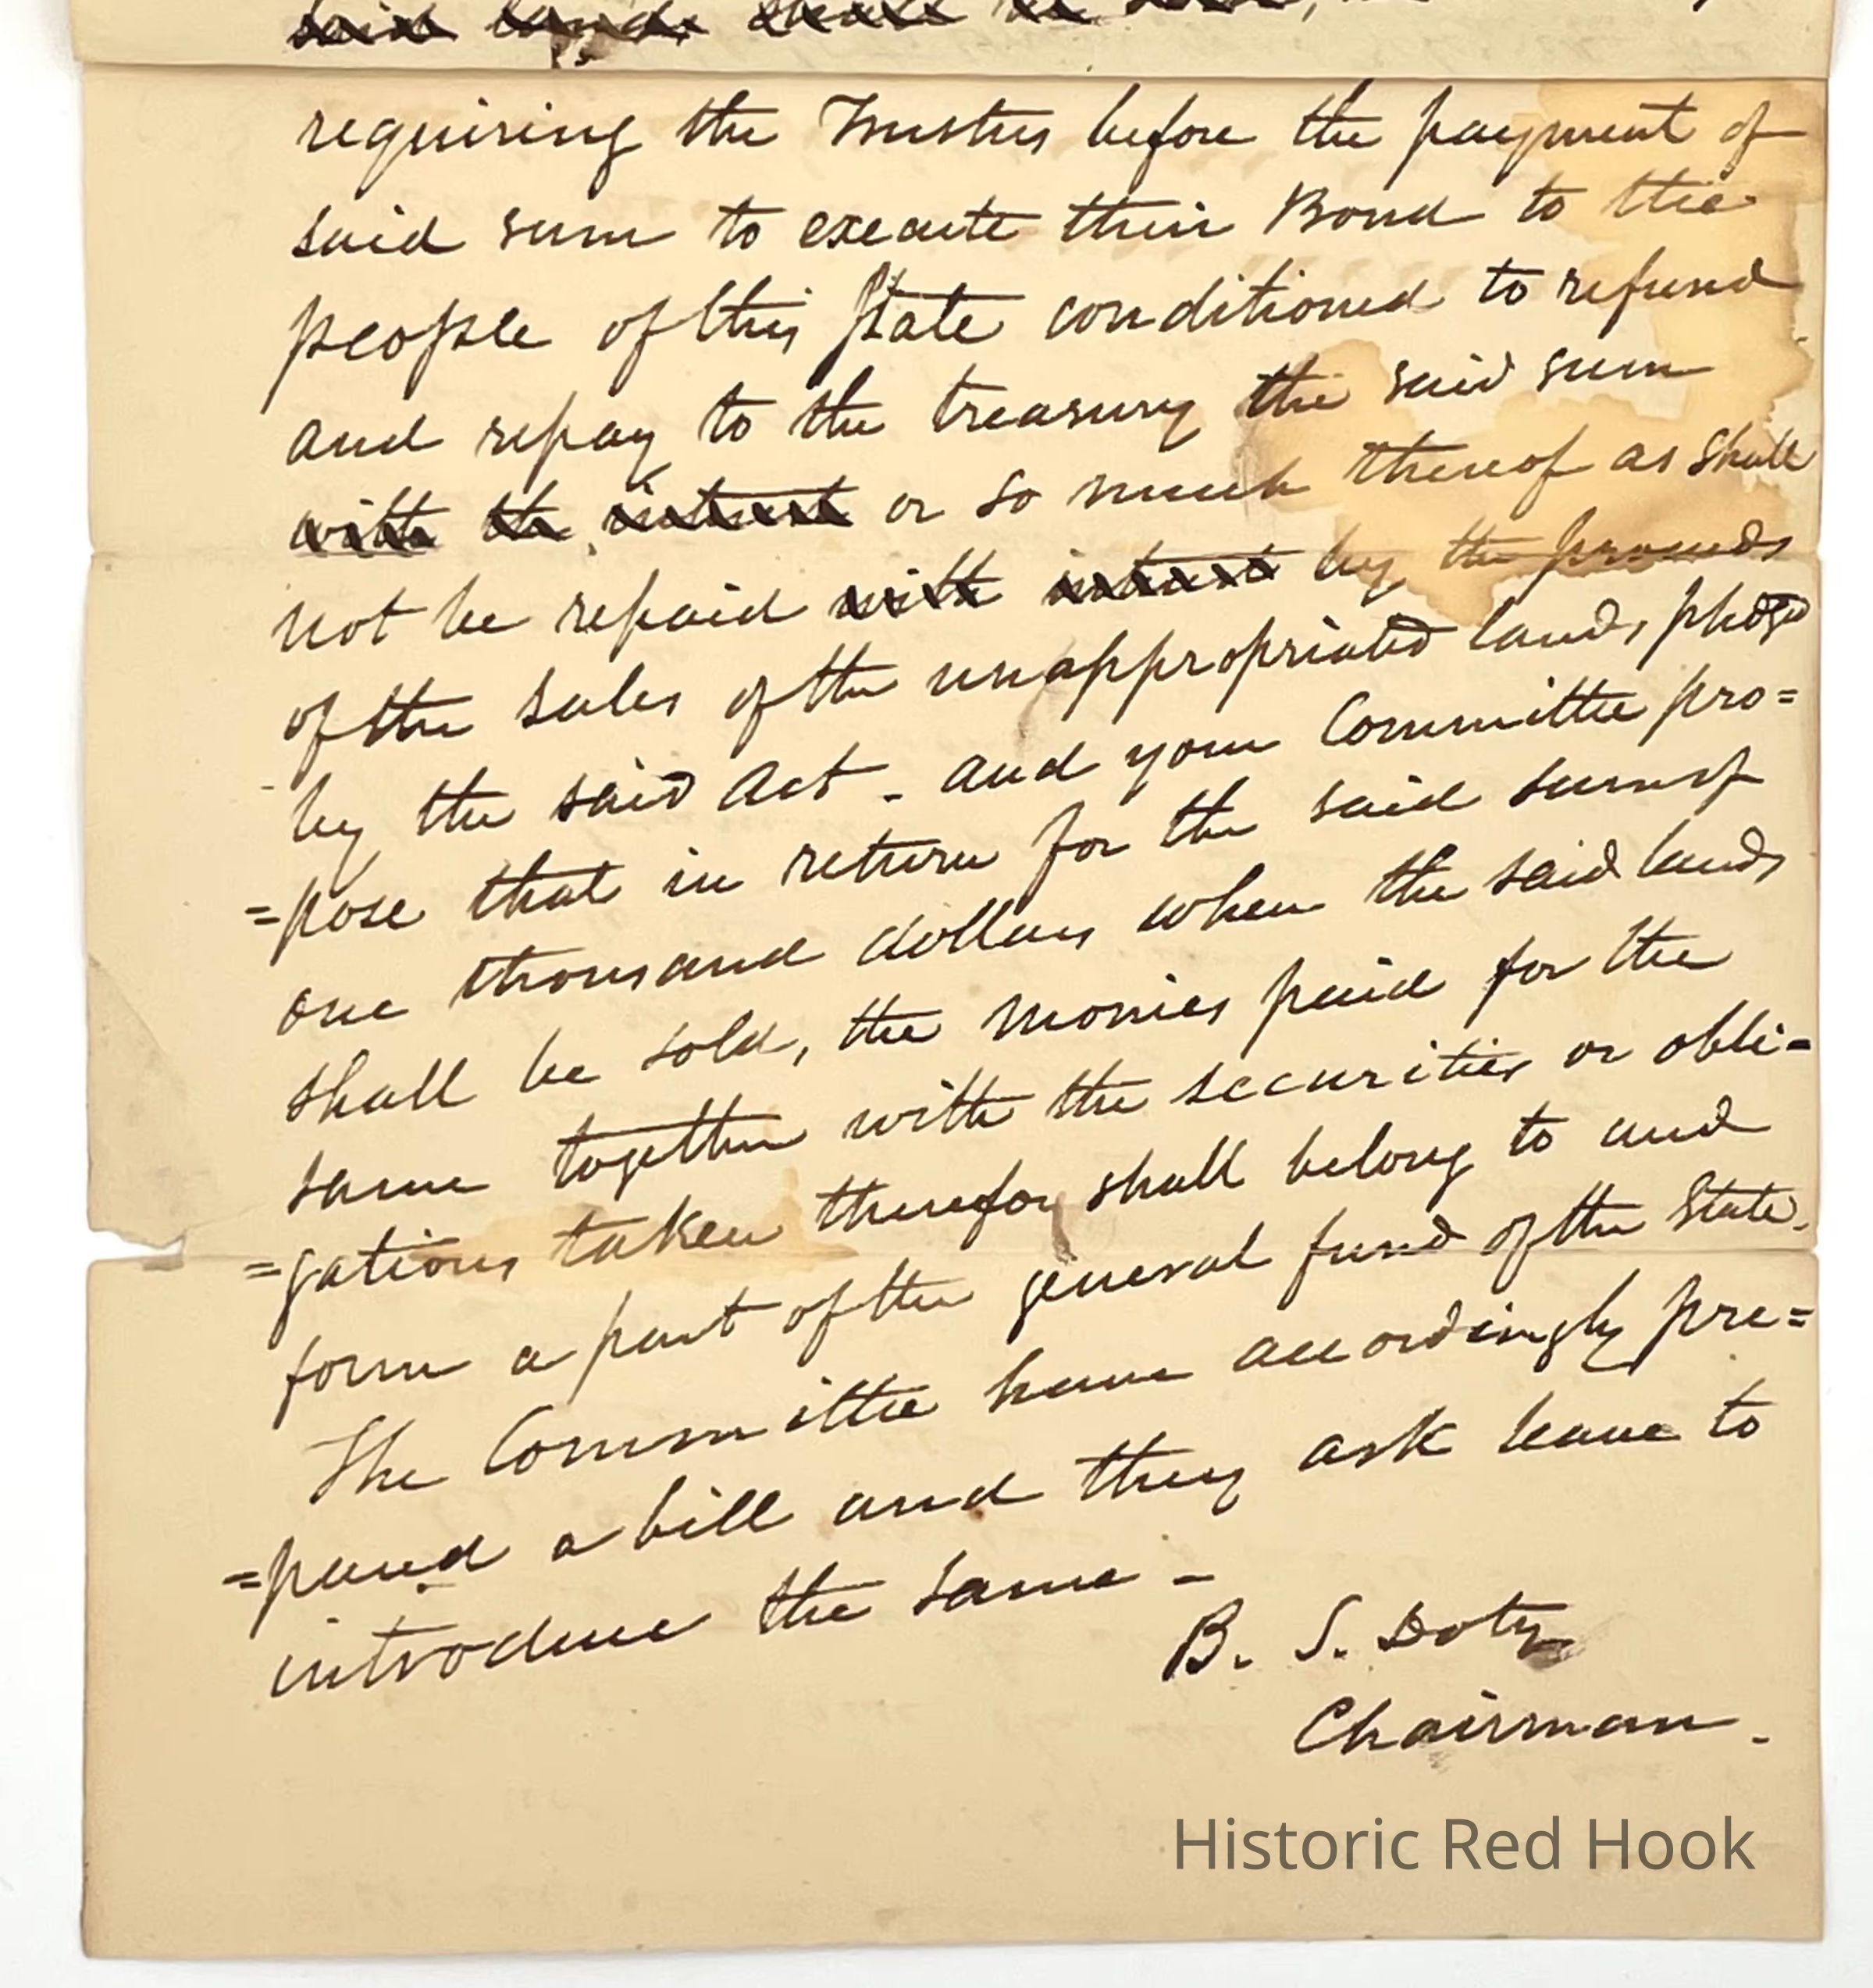 said lands shall be sold,
requiring the Trustees before the payment of
said sum to execute their Bond to the
people of this State conditioned to refund
and repay to the treasury the said sum
with the interest or so much thereof as shall
not be repaid with interest by the proceeds
of the sales of the unappropriated lands, pledged
by the said Act - and your Committee pro=
=pose that in return for the said sum of
one thousand dollars when the said lands
shall be sold, the monies paid for the
same together with the securities or obli=
=gations taken therefor shall belong to and
form a part of the general fund of the State.
The Committee have accordingly pre=
=pared a bill and they ask leave to
introduce the same -
B. S. Doty
Chairman.
Historic Red Hook